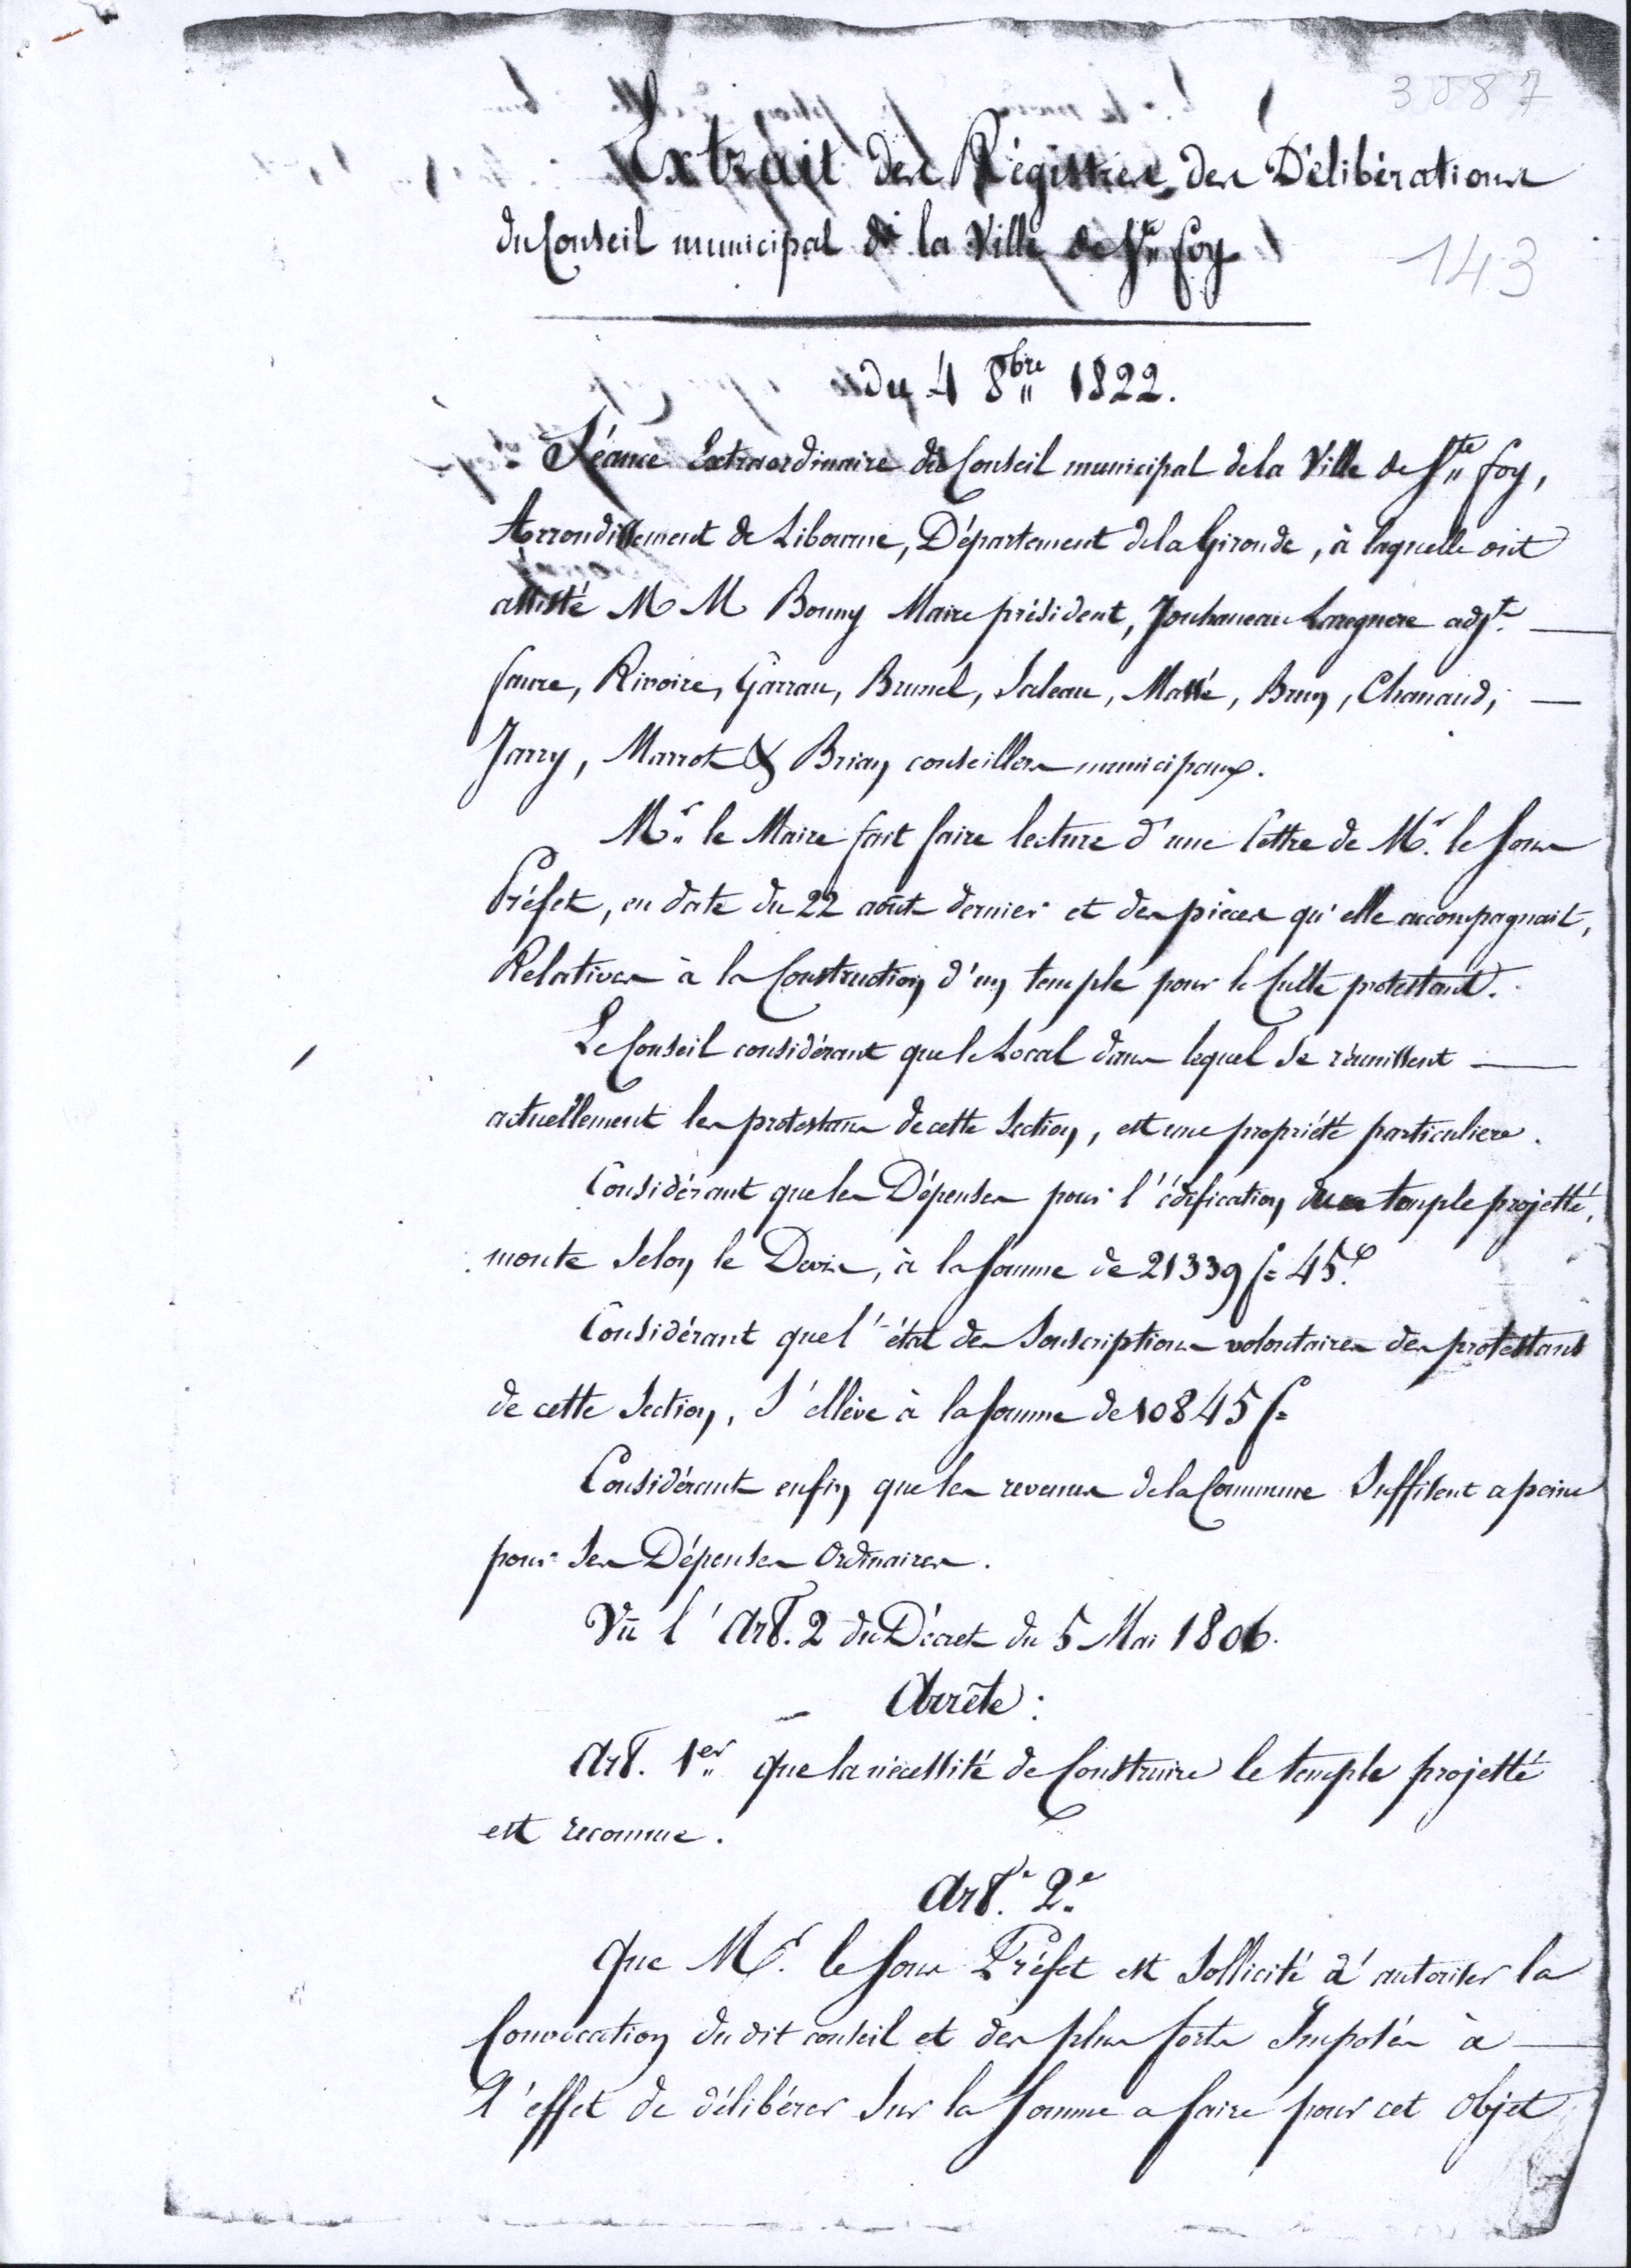 3587
Extrait des Régistres des Délibérations
du Conseil municipal de la Ville de Ste foy
143
du 4 8bre 1822.
Séance Extraordinaire du Conseil municipal de la Ville de Ste foy,
Arrondissement de Libourne, Département de la Gironde, à laquelle ont
assisté M M Bonny Maire président, Jouhaneau Laregnere adjt.
faure, Rivoire, Garrau, Brunel, Saleau, Massé, Brun, Chanaud,
Jarry, Marrot & Brian conseillers municipaux.
Mr. le Maire fait faire lecture d'une lettre de Mr. le Sous
Préfet, en date du 22 août dernier et des pièces qu'elle accompagnait,
Relatives à la Construction d'un temple pour le Culte protestant.
Le Conseil considérant que le Local dans lequel se réunissent
actuellement les protestans de cette Section, est une propriété particuliere.
Considérant que les Dépenses pour l'édification du temple projetté,
monte selon le Devis, à la somme de 21339 f. 45c.
Considérant que l'état des Souscriptions volontaires des protestans
de cette Section, s'ellève à la somme de 10845 f.
Considérant enfin que les revenus de la Commune suffisent a peine
pour ses Dépenses Ordinaires.
Vû l'Art. 2 du Décret du 5 Mai 1806.
Arrête :
Art. 1er que la nécessité de Construire le temple projetté
est reconnue.
Art. 2e
que Mr. le Sous Préfet est sollicité d'autoriser la
Convocation du dit conseil et des plus forts Imposés à
l'effet de délibérer sur la somme a faire pour cet objet